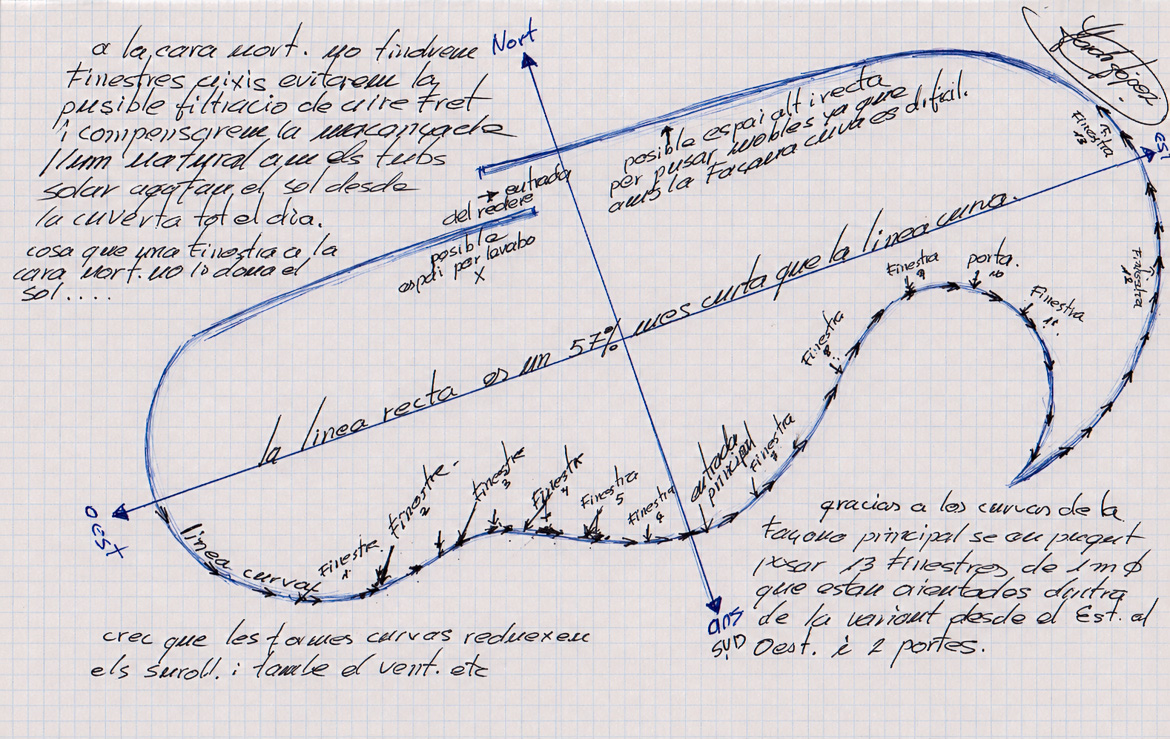 a la cara nort. no tindrem
Finestres aixis evitarem la
pusible filtracio de aire Fret
i compensarem la mancança de
llum natural am els tubs
solar agafan el sol desde
la cuverta tot el dia.
cosa que una Finestra a la
cara nort. no lo dona el
sol....
Nort
posible espai alt i recta
per pusar mobles ya que
amb la Façana curva es dificil.
→ entrada
del redere
posible
espai per lavabo
X
Finestra
13
est
la linea recta es un 57% mes curta que la linea curva.
Finestra
9
porta.
10
Finestra
11
Finestra
12
Finestra
8
entrada
principal
Finestra
7
Finestre
2
Finestre
3
Finestra
4
Finestra
5
Finestra
6
Finestre
1
o est
linea curva
ans
SUD
gracias a les curvas de la
Façana principal se an pugut
posar 13 Finestres de 1m Ø
que estan orientados dintra
de la variant desde el Est. al
Oest. i 2 portes.
crec que les formes curvas reduexen
els suroll. i tambe el vent. etc